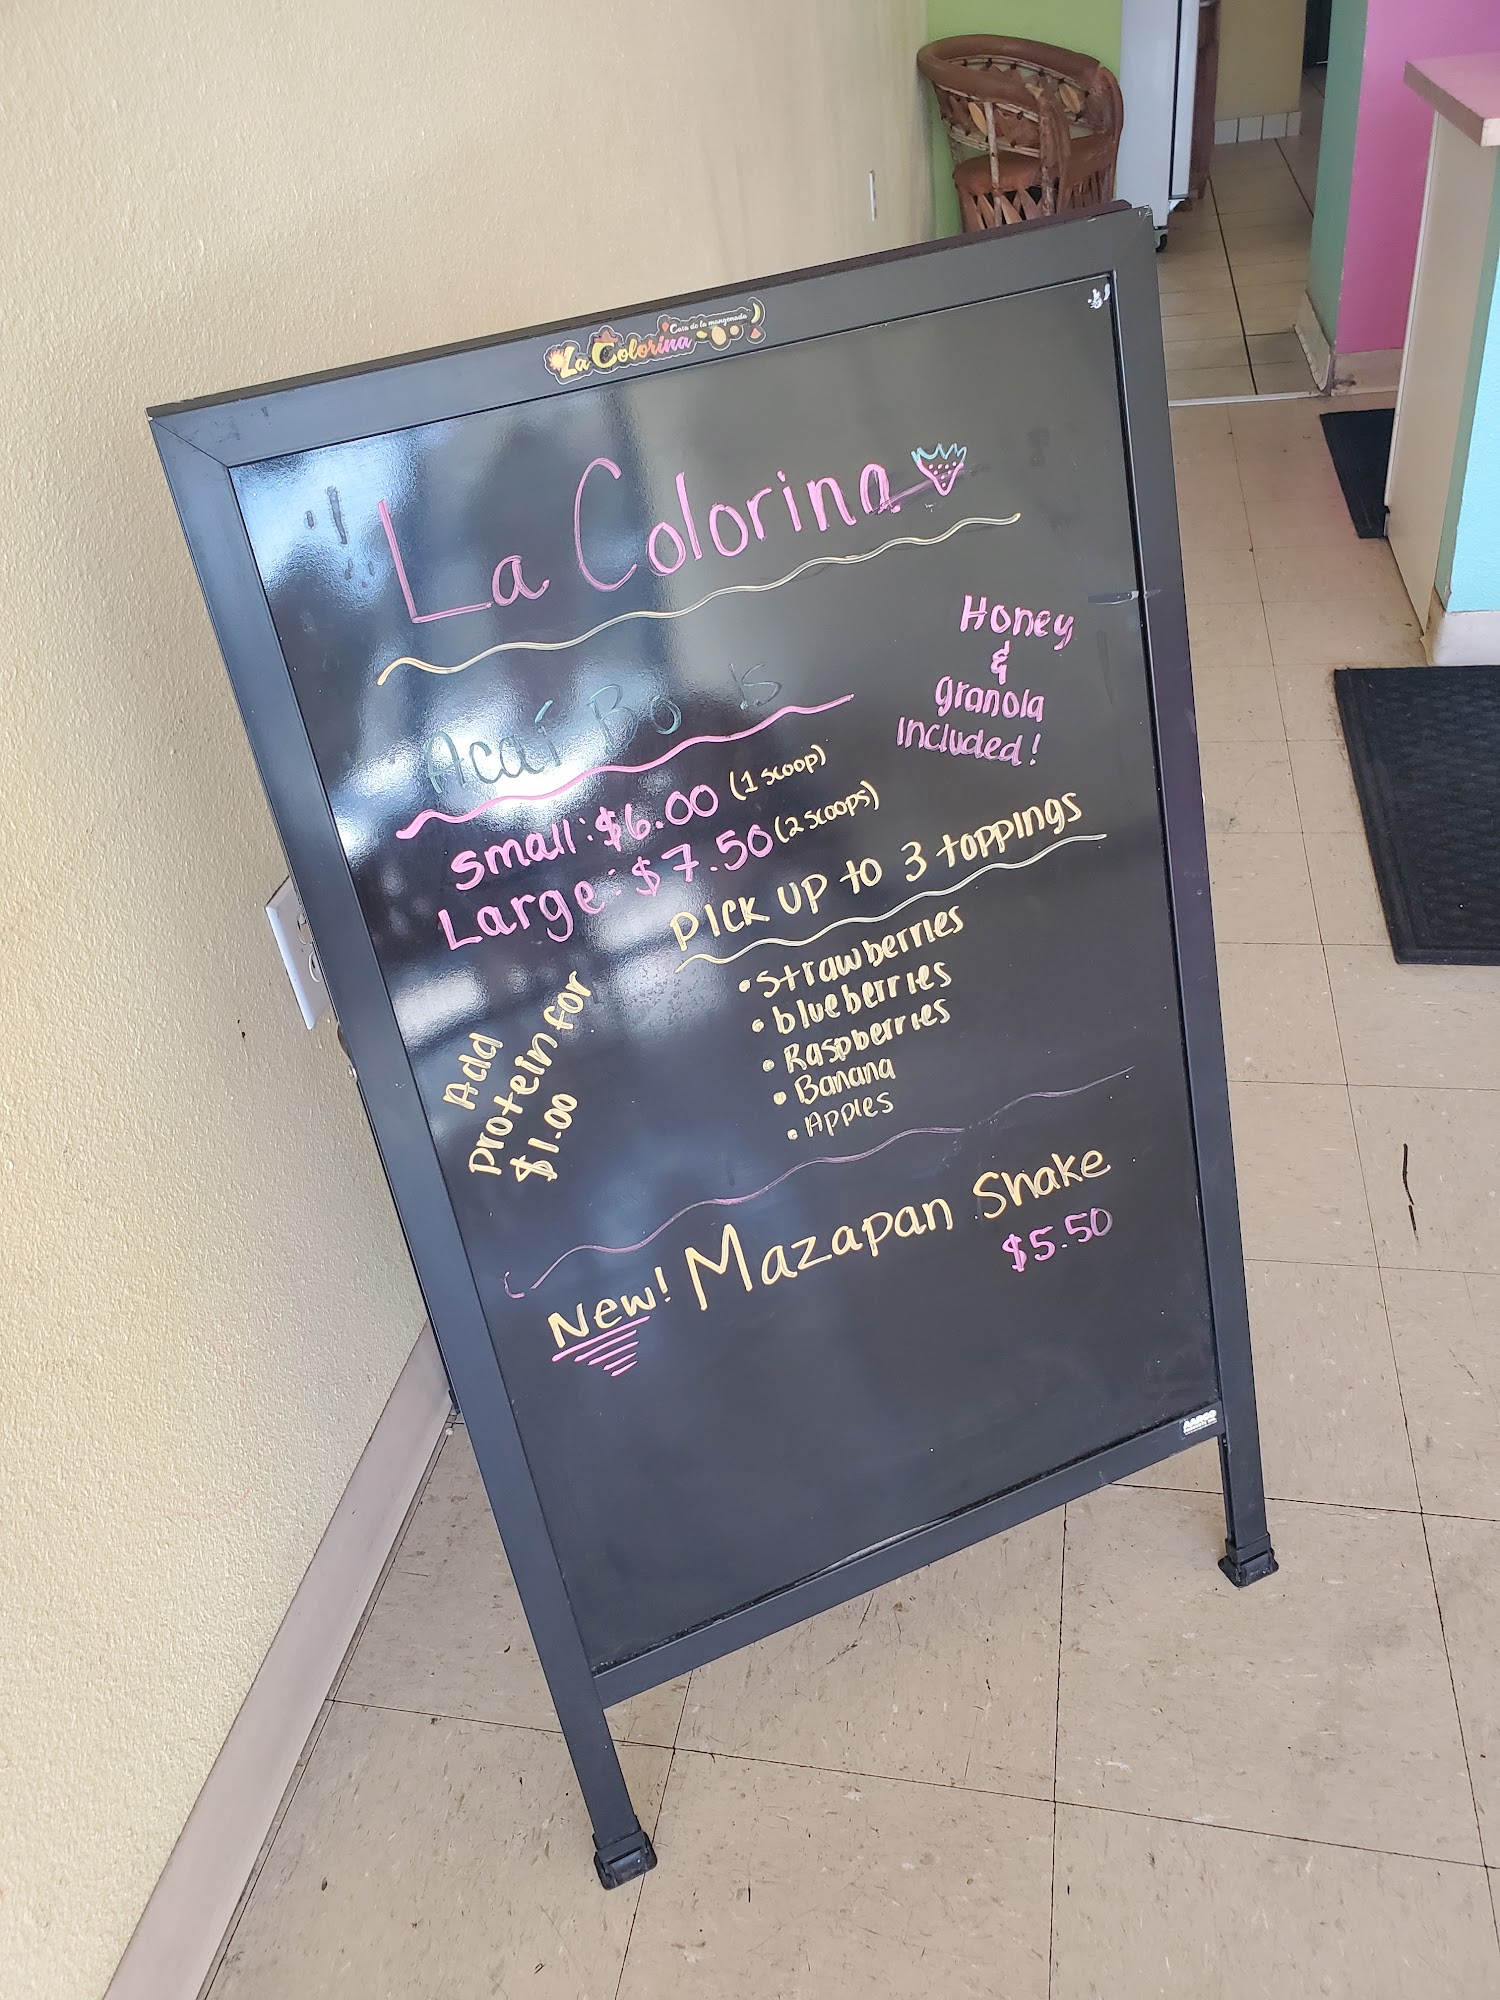 La Colorina
Casa de la mangonada
La Colorina
Honey
&
granola
included!
Acaí Bo ls
Small: $6.00 (1 scoop)
Large: $7.50 (2 scoops)
Pick up to 3 toppings
• Strawberries
• blueberries
• Raspberries
• Banana
• Apples
Add
protein for
$1.00
New! Mazapan Shake
$5.50